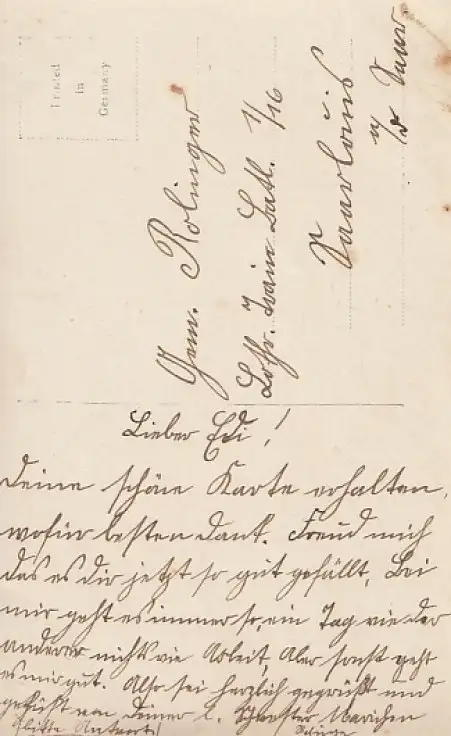 Printed
in
Germany
Gem. Rolinger
Lothr. Train Batl. 1/16
Saarlouis
a/d Saar
Lieber Edi!
Deine schöne Karte erhalten,
wofür besten Dank. Freud mich
das es dir jetzt so gut gefällt, Bei
mir geht es immer so, ein Tag wie der
anderer nichts wie Arbeit, Aber sonst geht
es mir gut. Also sei herzlich gegrüßt und
geküßt von Deiner l. Schwester Mariechen
(bitte Antwort)